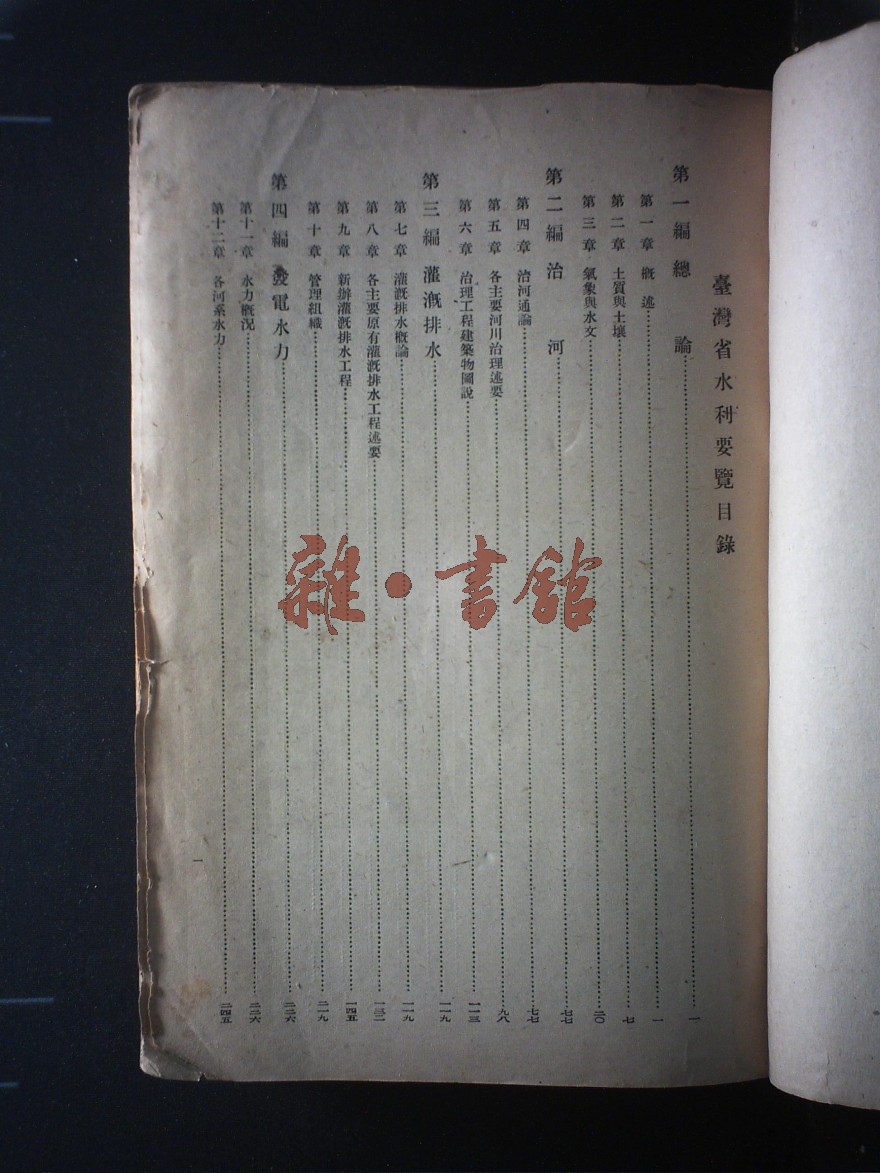 臺灣省水利要覽目錄
第一編 總論……一
第一章 概述……一
第二章 土質與土壤……七
第三章 氣象與水文……二〇
第二編 治河……七七
第四章 治河通論……七七
第五章 各主要河川治理述要……九八
第六章 治理工程建築物圖說……一一三
第三編 灌漑排水……一一九
第七章 灌漑排水概論……一一九
第八章 各主要原有灌漑排水工程述要……一三二
第九章 新辦灌漑排水工程……一四五
第十章 管理組織……二一九
第四編 發電水力……二二六
第十一章 水力概況……二二六
第十二章 各河系水力……二四五
一
雜·書館